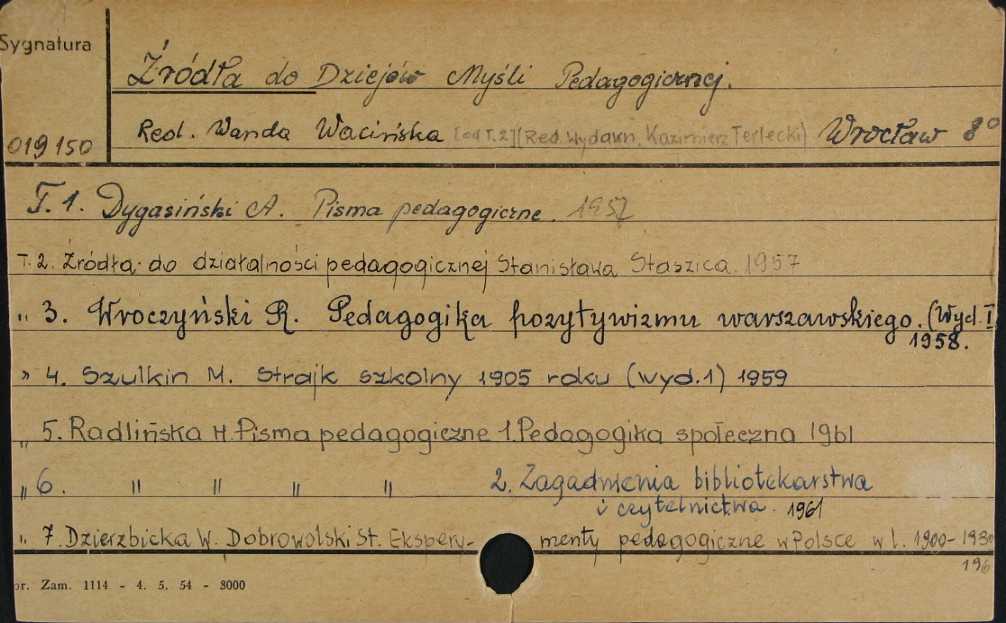 Sygnatura
Źródła do Dziejów Myśli Pedagogicznej.
019150
Red. Wanda Wacińska [od T.2] [Red. Wydawn. Kazimierz Terlecki] Wrocław 8°
T. 1. Dygasiński A. Pisma pedagogiczne. 1957
T. 2. Źródła do działalności pedagogicznej Stanisława Staszica. 1957
" 3. Wroczyński R. Pedagogika pozytywizmu warszawskiego. (Wyd. I)
1958.
" 4. Szulkin M. Strajk szkolny 1905 roku (wyd.1) 1959
" 5. Radlińska H. Pisma pedagogiczne 1. Pedagogika społeczna 1961
" 6. " " " " 2. Zagadnienia bibliotekarstwa
i czytelnictwa. 1961
" 7. Dzierzbicka W. Dobrowolski St. Ekspery- menty pedagogiczne w Polsce w l. 1900-1930
196
or. Zam. 1114 - 4. 5. 54 - 8000